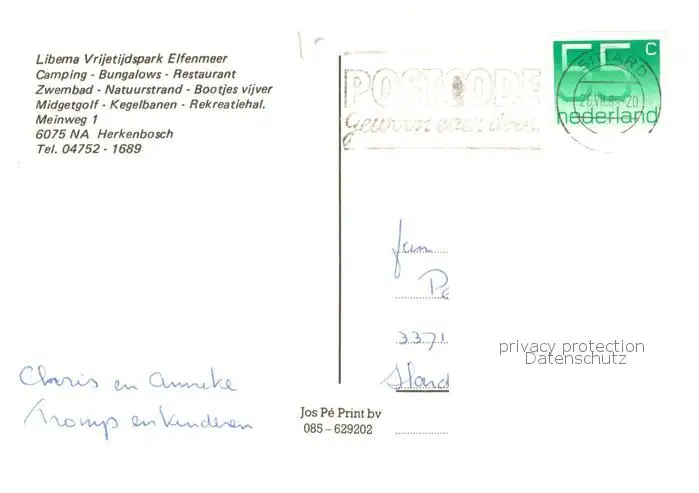 Libema Vrijetijdspark Elfenmeer
Camping - Bungalows - Restaurant
Zwembad - Natuurstrand - Bootjes vijver
Midgetgolf - Kegelbanen - Rekreatiehal.
Meinweg 1
6075 NA Herkenbosch
Tel. 04752 - 1689
POSTCODE
gewoon even doen
55 c
nederland
SITTARD
Fam
3371
privacy protection
Datenschutz
Chris en Anneke
Tromp en kinderen
Jos Pé Print bv
085-629202